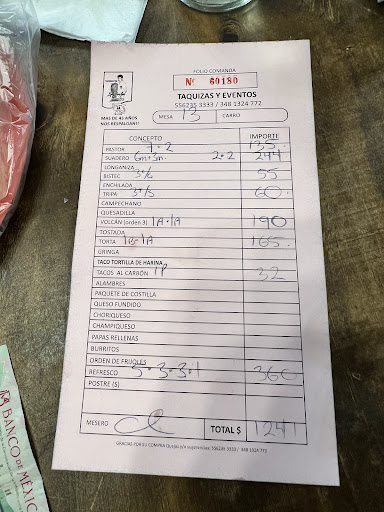 FOLIO COMANDA
Nº 60180
TAQUIZAS Y EVENTOS
556235 3333 / 348 1324 772
MAS DE 45 AÑOS
NOS RESPALDAN!!
MESA 13 CARRO
CONCEPTO IMPORTE
PASTOR 7·2 135
SUADERO 6m+3m 2·2 244
LONGANIZA
BISTEC 55
ENCHILADA
TRIPA 60
CAMPECHANO
QUESADILLA
VOLCÁN (orden 3) 1A·1A 190
TOSTADA
TORTA 165
GRINGA
TACO TORTILLA DE HARINA
TACOS AL CARBÓN 1P 32
ALAMBRES
PAQUETE DE COSTILLA
QUESO FUNDIDO
CHORIQUESO
CHAMPIQUESO
PAPAS RELLENAS
BURRITOS
ORDEN DE FRIJOLES
REFRESCO 5·3·3·1 360
POSTRE (S)
MESERO TOTAL $ 1241
GRACIAS POR SU COMPRA Quejas y/o sugerencias: 556235 3333 / 348 1324 772
BANCO DE MÉXIC